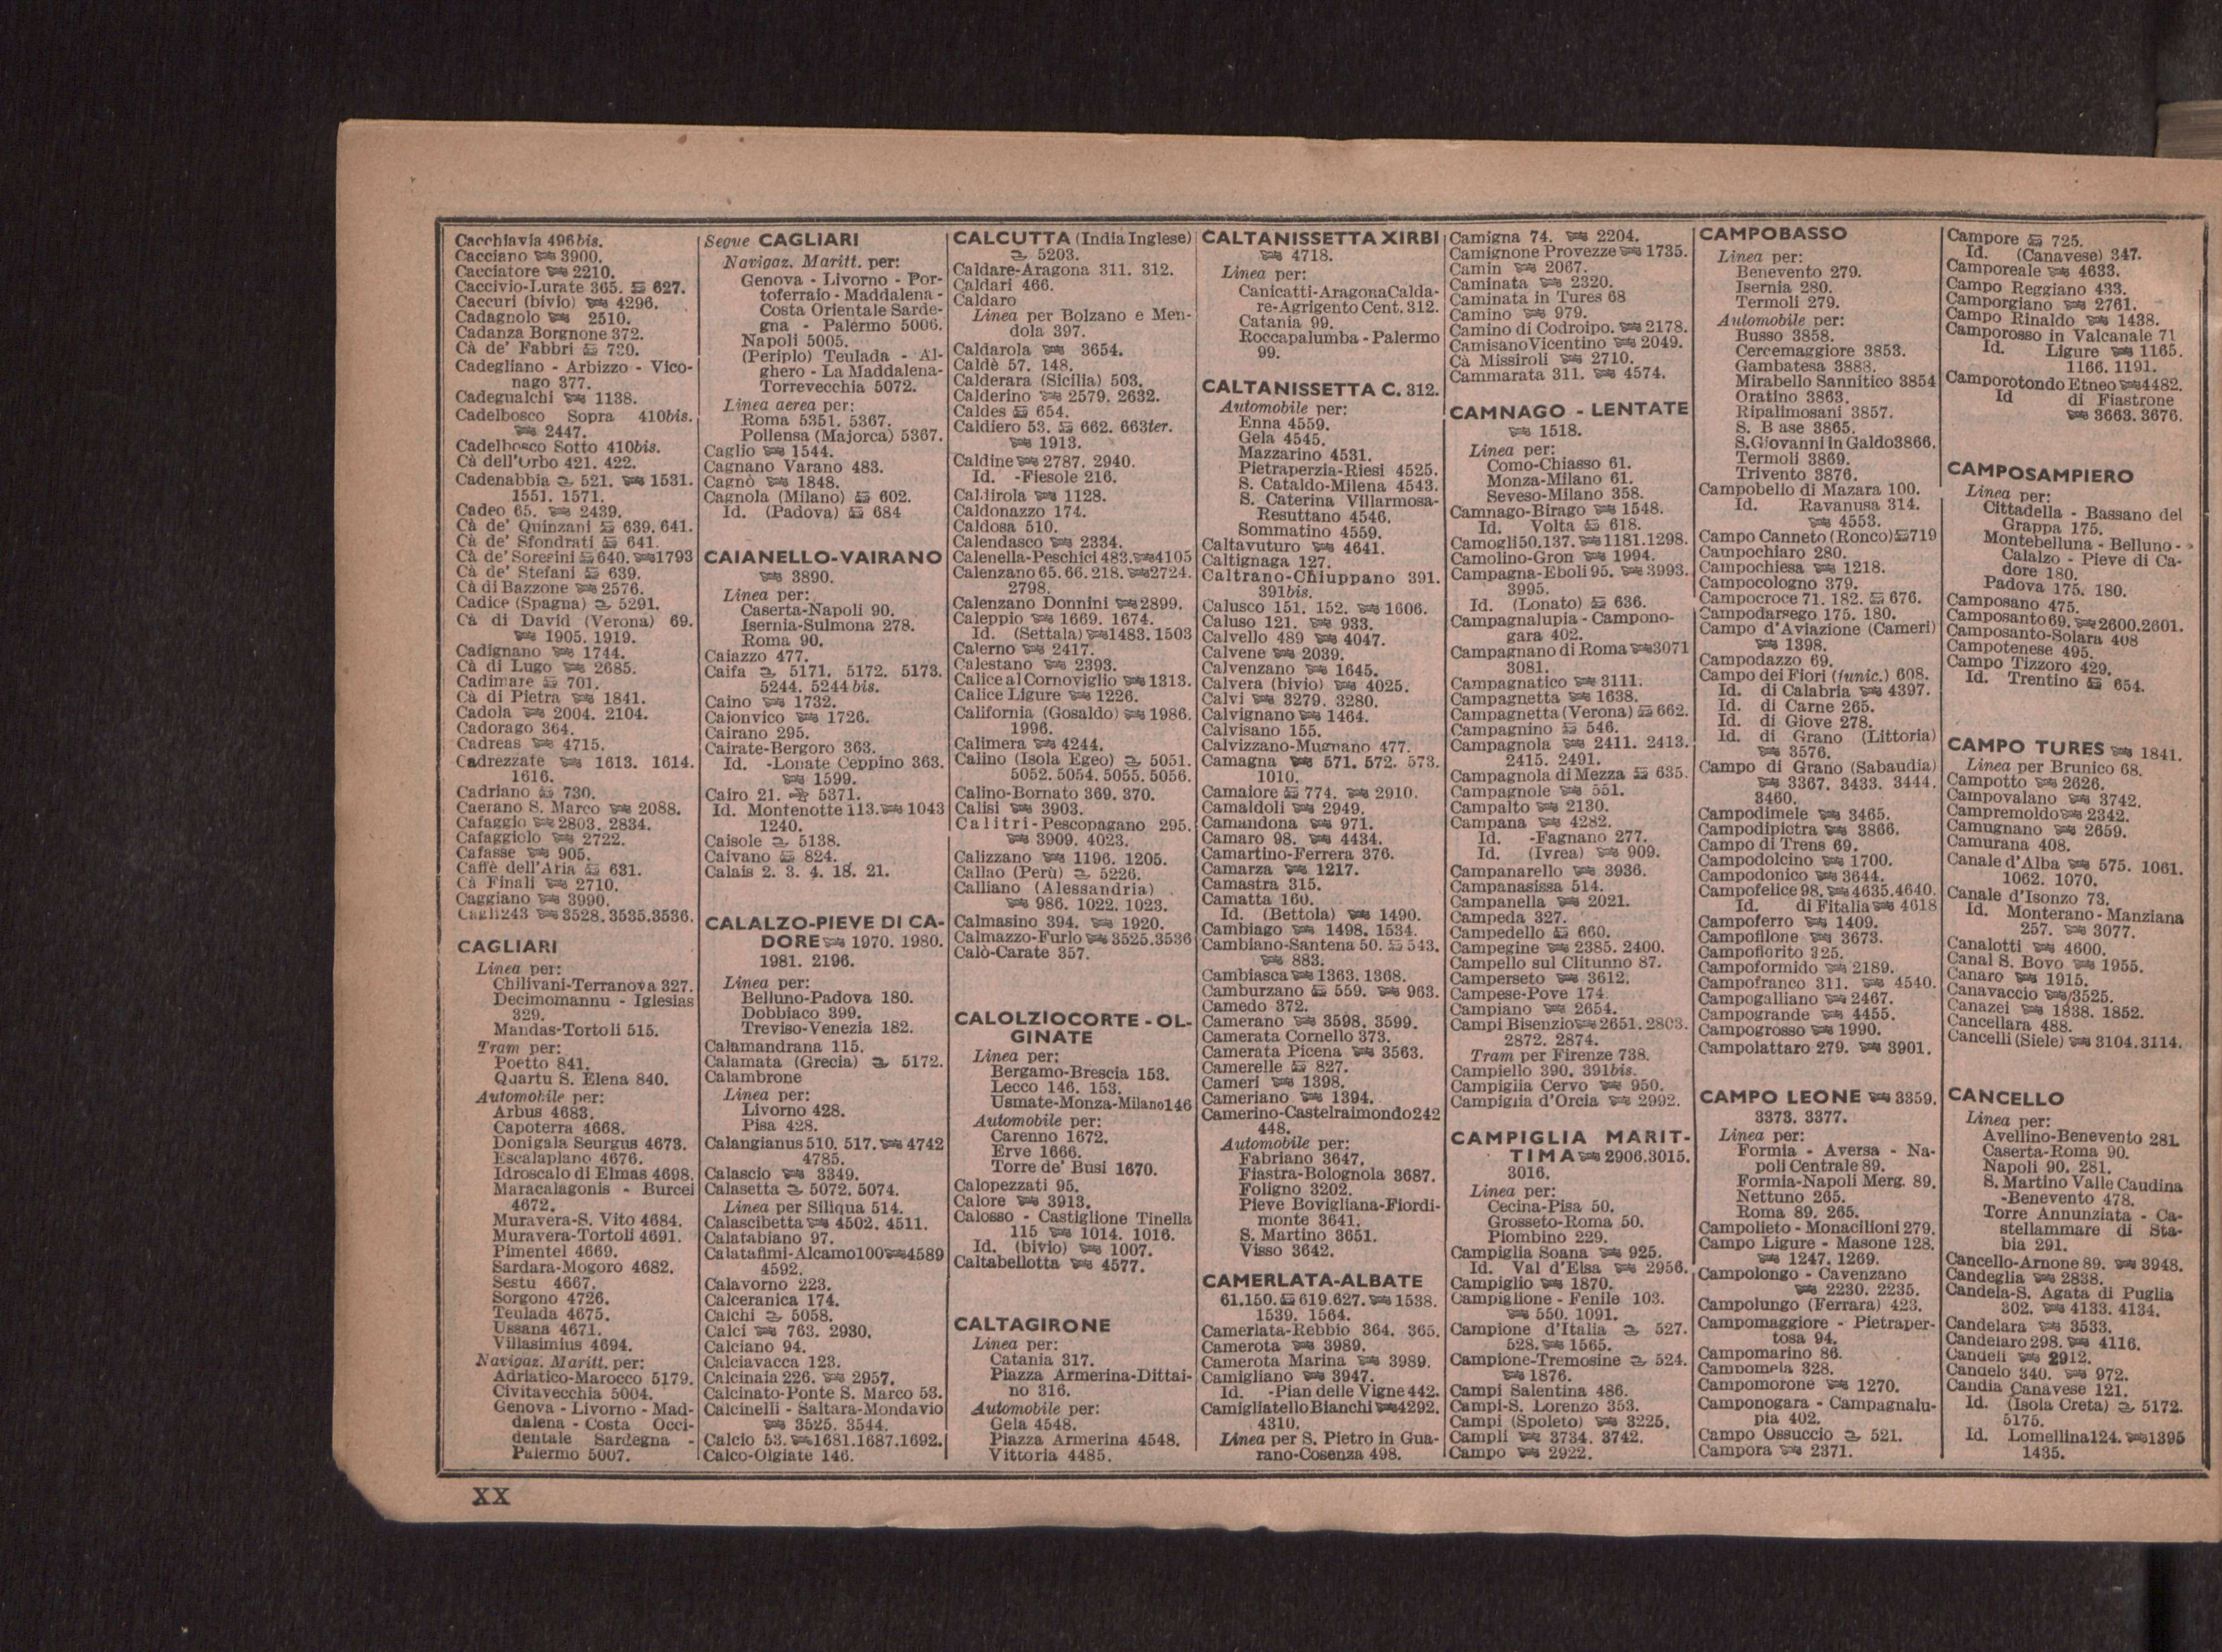 Cacchiavia 496bis.
Cacciano 3900.
Cacciatore 2210.
Caccivio-Lurate 365. 627.
Caccuri (bivio) 4296.
Cadagnolo 2510.
Cadanza Borgnone 372.
Cà de' Fabbri 730.
Cadegliano - Arbizzo - Vico-
nago 377.
Cadegualchi 1138.
Cadelbosco Sopra 410bis.
2447.
Cadelbosco Sotto 410bis.
Cà dell'Orbo 421. 422.
Cadenabbia 521. 1531.
1551. 1571.
Cadeo 65. 2439.
Cà de' Quinzani 639. 641.
Cà de' Sfondrati 641.
Cà de' Soresini 640. 1793
Cà de' Stefani 639.
Cà di Bazzone 2576.
Cadice (Spagna) 5291.
Cà di David (Verona) 69.
1905. 1919.
Cadignano 1744.
Cà di Lugo 2685.
Cadimare 701.
Cà di Pietra 1841.
Cadola 2004. 2104.
Cadorago 364.
Cadreas 4715.
Cadrezzate 1613. 1614.
1616.
Cadriano 730.
Caerano S. Marco 2088.
Cafaggio 2803. 2834.
Cafaggiolo 2722.
Cafasse 905.
Caffè dell'Aria 631.
Cà Finali 2710.
Caggiano 3990.
Cagli 243 3528. 3535. 3536.
CAGLIARI
Linea per:
Chilivani-Terranova 327.
Decimomannu - Iglesias
329.
Mandas-Tortoli 515.
Tram per:
Poetto 841.
Quartu S. Elena 840.
Automobile per:
Arbus 4683.
Capoterra 4668.
Donigala Seurgus 4673.
Escalaplano 4676.
Idroscalo di Elmas 4698.
Maracalagonis - Burcei
4672.
Muravera-S. Vito 4684.
Muravera-Tortolì 4691.
Pimentel 4669.
Sardara-Mogoro 4682.
Sestu 4667.
Sorgono 4726.
Teulada 4675.
Ussana 4671.
Villasimius 4694.
Navigaz. Maritt. per:
Adriatico-Marocco 5179.
Civitavecchia 5004.
Genova - Livorno - Mad-
dalena - Costa Occi-
dentale Sardegna -
Palermo 5007.
Segue CAGLIARI
Navigaz. Maritt. per:
Genova - Livorno - Por-
toferraio - Maddalena -
Costa Orientale Sarde-
gna - Palermo 5006.
Napoli 5005.
(Periplo) Teulada - Al-
ghero - La Maddalena-
Torrevecchia 5072.
Linea aerea per:
Roma 5351. 5367.
Pollensa (Majorca) 5367.
Caglio 1544.
Cagnano Varano 483.
Cagnò 1848.
Cagnola (Milano) 602.
Id. (Padova) 684
CAIANELLO-VAIRANO
3890.
Linea per:
Caserta-Napoli 90.
Isernia-Sulmona 278.
Roma 90.
Caiazzo 477.
Caifa 5171. 5172. 5173.
5244. 5244 bis.
Caino 1732.
Caionvico 1726.
Cairano 295.
Cairate-Bergoro 363.
Id. -Lonate Ceppino 363.
1599.
Cairo 21. 5371.
Id. Montenotte 113. 1043
1240.
Caisole 5138.
Caivano 824.
Calais 2. 3. 4. 18. 21.
CALALZO-PIEVE DI CA-
DORE 1970. 1980.
1981. 2196.
Linea per:
Belluno-Padova 180.
Dobbiaco 399.
Treviso-Venezia 182.
Calamandrana 115.
Calamata (Grecia) 5172.
Calambrone
Linea per:
Livorno 428.
Pisa 428.
Calangianus 510. 517. 4742
4785.
Calascio 3349.
Calasetta 5072. 5074.
Linea per Siliqua 514.
Calascibetta 4502. 4511.
Calatabiano 97.
Calatafimi-Alcamo 100 4589
4592.
Calavorno 223.
Calceranica 174.
Calchi 5058.
Calci 763. 2930.
Calciano 94.
Calciavacca 123.
Calcinaia 226. 2957.
Calcinato-Ponte S. Marco 53.
Calcinelli - Saltara-Mondavio
3525. 3544.
Calcio 53. 1681.1687.1692.
Calco-Olgiate 146.
CALCUTTA (India Inglese)
5203.
Caldare-Aragona 311. 312.
Caldari 466.
Caldaro
Linea per Bolzano e Men-
dola 397.
Caldarola 3654.
Caldè 57. 148.
Calderara (Sicilia) 503.
Calderino 2579. 2632.
Caldes 654.
Caldiero 53. 662. 663ter.
1913.
Caldine 2787. 2940.
Id. -Fiesole 216.
Caldirola 1128.
Caldonazzo 174.
Caldosa 510.
Calendasco 2334.
Calenella-Peschici 483. 4105
Calenzano 65. 66. 218. 2724.
2798.
Calenzano Donnini 2899.
Caleppio 1669. 1674.
Id. (Settala) 1483. 1503
Calerno 2417.
Calestano 2393.
Calice al Cornoviglio 1313.
Calice Ligure 1226.
California (Gosaldo) 1986.
1996.
Calimera 4244.
Calino (Isola Egeo) 5051.
5052. 5054. 5055. 5056.
Calino-Bornato 369. 370.
Calisi 3903.
Calitri-Pescopagano 295.
3909. 4023.
Calizzano 1196. 1205.
Callao (Perù) 5226.
Calliano (Alessandria)
986. 1022. 1023.
Calmasino 394. 1920.
Calmazzo-Furlo 3525.3536
Calò-Carate 357.
CALOLZIOCORTE - OL-
GINATE
Linea per:
Bergamo-Brescia 153.
Lecco 146. 153.
Usmate-Monza-Milano 146
Automobile per:
Carenno 1672.
Erve 1666.
Torre de' Busi 1670.
Calopezzati 95.
Calore 3913.
Calosso - Castiglione Tinella
115 1014. 1016.
Id. (bivio) 1007.
Caltabellotta 4577.
CALTAGIRONE
Linea per:
Catania 317.
Piazza Armerina-Dittai-
no 316.
Automobile per:
Gela 4548.
Piazza Armerina 4548.
Vittoria 4485.
CALTANISSETTA XIRBI
4718.
Linea per:
Canicatti-AragonaCalda-
re-Agrigento Cent. 312.
Catania 99.
Roccapalumba - Palermo
99.
CALTANISSETTA C. 312.
Automobile per:
Enna 4559.
Gela 4545.
Mazzarino 4531.
Pietraperzia-Riesi 4525.
S. Cataldo-Milena 4543.
S. Caterina Villarmosa-
Resuttano 4546.
Sommatino 4559.
Caltavuturo 4641.
Caltignaga 127.
Caltrano-Chiuppano 391.
391bis.
Calusco 151. 152. 1606.
Caluso 121. 933.
Calvello 489 4047.
Calvene 2039.
Calvenzano 1645.
Calvera (bivio) 4025.
Calvi 3279. 3280.
Calvignano 1464.
Calvisano 155.
Calvizzano-Mugnano 477.
Camagna 571. 572. 573.
1010.
Camaiore 774. 2910.
Camaldoli 2949.
Camandona 971.
Camaro 98. 4434.
Camartino-Ferrera 376.
Camarza 1217.
Camastra 315.
Camatta 160.
Id. (Bettola) 1490.
Cambiago 1498. 1534.
Cambiano-Santena 50. 543.
883.
Cambiasca 1363. 1368.
Camburzano 559. 963.
Camedo 372.
Camerano 3598. 3599.
Camerata Cornello 373.
Camerata Picena 3563.
Camerelle 827.
Cameri 1398.
Cameriano 1394.
Camerino-Castelraimondo 242
448.
Automobile per:
Fabriano 3647.
Fiastra-Bolognola 3687.
Foligno 3202.
Pieve Bovigliana-Fiordi-
monte 3641.
S. Martino 3651.
Visso 3642.
CAMERLATA-ALBATE
61.150. 619.627. 1538.
1539. 1564.
Camerlata-Rebbio 364. 365.
Camerota 3989.
Camerota Marina 3989.
Camigliano 3947.
Id. -Pian delle Vigne 442.
Camigliatello Bianchi 4292.
4310.
Linea per S. Pietro in Gua-
rano-Cosenza 498.
Camigna 74. 2204.
Camignone Provezze 1735.
Camin 2067.
Caminata 2320.
Caminata in Tures 68
Camino 979.
Camino di Codroipo. 2178.
CamisanoVicentino 2049.
Cà Missiroli 2710.
Cammarata 311. 4574.
CAMNAGO - LENTATE
1518.
Linea per:
Como-Chiasso 61.
Monza-Milano 61.
Seveso-Milano 358.
Camnago-Birago 1548.
Id. Volta 618.
Camogli 50.137. 1181.1298.
Camolino-Gron 1994.
Campagna-Eboli 95. 3993.
3995.
Id. (Lonato) 636.
Campagnalupia - Campono-
gara 402.
Campagnano di Roma 3071
3081.
Campagnatico 3111.
Campagnetta 1638.
Campagnetta (Verona) 662.
Campagnino 546.
Campagnola 2411. 2413.
2415. 2491.
Campagnola di Mezza 635.
Campagnole 551.
Campalto 2130.
Campana 4282.
Id. -Fagnano 277.
Id. (Ivrea) 909.
Campanarello 3936.
Campanasissa 514.
Campanella 2021.
Campeda 327.
Campedello 660.
Campegine 2385. 2400.
Campello sul Clitunno 87.
Camperseto 3612.
Campese-Pove 174.
Campiano 2654.
Campi Bisenzio 2651. 2803.
2872. 2874.
Tram per Firenze 738.
Campiello 390. 391bis.
Campiglia Cervo 950.
Campiglia d'Orcia 2992.
CAMPIGLIA MARIT-
TIMA 2906.3015.
3016.
Linea per:
Cecina-Pisa 50.
Grosseto-Roma 50.
Piombino 229.
Campiglia Soana 925.
Id. Val d'Elsa 2956.
Campiglio 1870.
Campiglione - Fenile 103.
550. 1091.
Campione d'Italia 527.
528. 1565.
Campione-Tremosine 524.
1876.
Campi Salentina 486.
Campi-S. Lorenzo 353.
Campi (Spoleto) 3225.
Campli 3734. 3742.
Campo 2922.
CAMPOBASSO
Linea per:
Benevento 279.
Isernia 280.
Termoli 279.
Automobile per:
Busso 3858.
Cercemaggiore 3853.
Gambatesa 3888.
Mirabello Sannitico 3854
Oratino 3863.
Ripalimosani 3857.
S. B ase 3865.
S.Giovanni in Galdo3866.
Termoli 3869.
Trivento 3876.
Campobello di Mazara 100.
Id. Ravanusa 314.
4553.
Campo Canneto (Ronco) 719
Campochiaro 280.
Campochiesa 1218.
Campocologno 379.
Campocroce 71. 182. 676.
Campodarsego 175. 180.
Campo d'Aviazione (Cameri)
1398.
Campodazzo 69.
Campo dei Fiori (funic.) 608.
Id. di Calabria 4397.
Id. di Carne 265.
Id. di Giove 278.
Id. di Grano (Littoria)
3576.
Campo di Grano (Sabaudia)
3367. 3433. 3444.
3460.
Campodimele 3465.
Campodipietra 3866.
Campo di Trens 69.
Campodolcino 1700.
Campodonico 3644.
Campofelice 98. 4635.4640.
Id. di Fitalia 4618
Campoferro 1409.
Campofilone 3673.
Campofiorito 325.
Campoformido 2189.
Campofranco 311. 4540.
Campogalliano 2467.
Campogrande 4455.
Campogrosso 1990.
Campolattaro 279. 3901.
CAMPO LEONE 3359.
3373. 3377.
Linea per:
Formia - Aversa - Na-
poli Centrale 89.
Formia-Napoli Merg. 89.
Nettuno 265.
Roma 89. 265.
Campolieto - Monacilioni 279.
Campo Ligure - Masone 128.
1247. 1269.
Campolongo - Cavenzano
2230. 2235.
Campolungo (Ferrara) 423.
Campomaggiore - Pietraper-
tosa 94.
Campomarino 86.
Campomela 328.
Campomorone 1270.
Camponogara - Campagnalu-
pia 402.
Campo Ossuccio 521.
Campora 2371.
Campore 725.
Id. (Canavese) 347.
Camporeale 4633.
Campo Reggiano 433.
Camporgiano 2761.
Campo Rinaldo 1438.
Camporosso in Valcanale 71
Id. Ligure 1165.
1166. 1191.
Camporotondo Etneo 4482.
Id di Fiastrone
3663. 3676.
CAMPOSAMPIERO
Linea per:
Cittadella - Bassano del
Grappa 175.
Montebelluna - Belluno -
Calalzo - Pieve di Ca-
dore 180.
Padova 175. 180.
Camposano 475.
Camposanto 69. 2600.2601.
Camposanto-Solara 408
Campotenese 495.
Campo Tizzoro 429.
Id. Trentino 654.
CAMPO TURES 1841.
Linea per Brunico 68.
Campotto 2626.
Campovalano 3742.
Campremoldo 2342.
Camugnano 2659.
Camurana 408.
Canale d'Alba 575. 1061.
1062. 1070.
Canale d'Isonzo 73.
Id. Monterano - Manziana
257. 3077.
Canalotti 4600.
Canal S. Bovo 1955.
Canaro 1915.
Canavaccio 3525.
Canazei 1838. 1852.
Cancellara 488.
Cancelli (Siele) 3104.3114.
CANCELLO
Linea per:
Avellino-Benevento 281.
Caserta-Roma 90.
Napoli 90. 281.
S. Martino Valle Caudina
-Benevento 478.
Torre Annunziata - Ca-
stellammare di Sta-
bia 291.
Cancello-Arnone 89. 3948.
Candeglia 2838.
Candela-S. Agata di Puglia
302. 4133. 4134.
Candelara 3533.
Candelaro 298. 4116.
Candeli 2912.
Candelo 340. 972.
Candia Canavese 121.
Id. (Isola Creta) 5172.
5175.
Id. Lomellina 124. 1395
1435.
XX